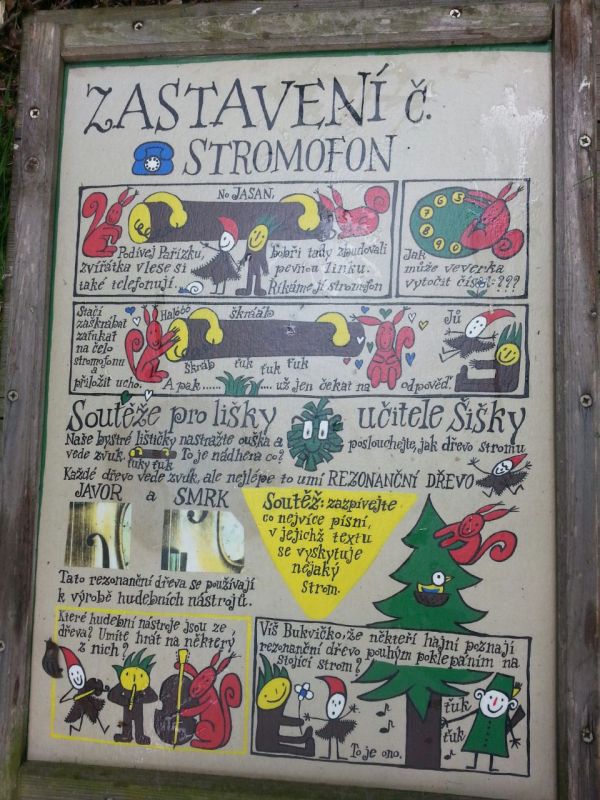 ZASTAVENÍ č.
STROMOFON
No JASAN,
Podívej Pařízku,
zvířátka v lese si
také telefonují.
bobři tady zbudovali
pevnou linku.
Říkáme jí stromofon
6 5
7
8 9 0
Jak
může veverka
vytočit číslo???
Stačí
zaškrábat
zaťukat
na čelo
stromofonu
a
přiložit ucho.
Halóóó
škrááb
škráb
ťuk ťuk ťuk
A pak ...... už jen čekat na odpověď.
Jů
Soutěže pro lišky učitele Šišky
Naše bystré lištičky nastražte ouška a poslouchejte, jak dřevo stromu
vede zvuk. To je nádhera co?
ťuky ťuk
Každé dřevo vede zvuk, ale nejlépe to umí REZONANČNÍ DŘEVO
JAVOR a SMRK
Soutěž: zazpívejte
co nejvíce písní,
v jejichž textu
se vyskytuje
nějaký
strom.
Tato rezonanční dřeva se používají
k výrobě hudebních nástrojů.
Které hudební nástroje jsou ze
dřeva? Umíte hrát na některý
z nich?
Víš Bukvičko, že někteří hajní poznají
rezonanční dřevo pouhým poklepáním na
stojící strom?
ťuk
ťuk
To je ono.